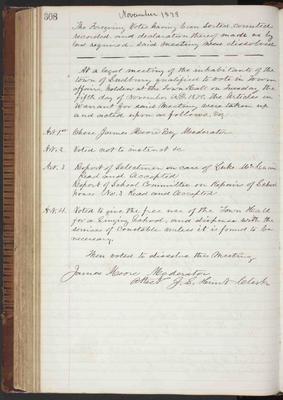 308
November 1878
The Foregoing Votes having been sorted, counted
recorded and declaration thereof made as by
law required said meeting were dissolved
At a legal meeting of the inhabitants of the
town of Sudbury qualified to vote in Town
affairs, holden at the Town Hall on Tuesday the
fifth day of November A.D. 1878. The Articles in
Warrant for said Meeting were taken up
and acted upon as follows, Viz
Art 1st Chose James Moore Esq Moderator
Art. 2 Voted not to
Art. 3 Report of Selectmen on case of Luke
Read and Accepted
Report of School Committee on Repairs of School
house No. 3 Read and Accepted
Art. 4. Voted to give the free use of the Town Hall
for a Singing School, and dispense with the
services of Constable unless it is found to be
necessary.
Then voted to dissolve this Meeting
James Moore Moderator
Attest J. S. Hunt Clerk